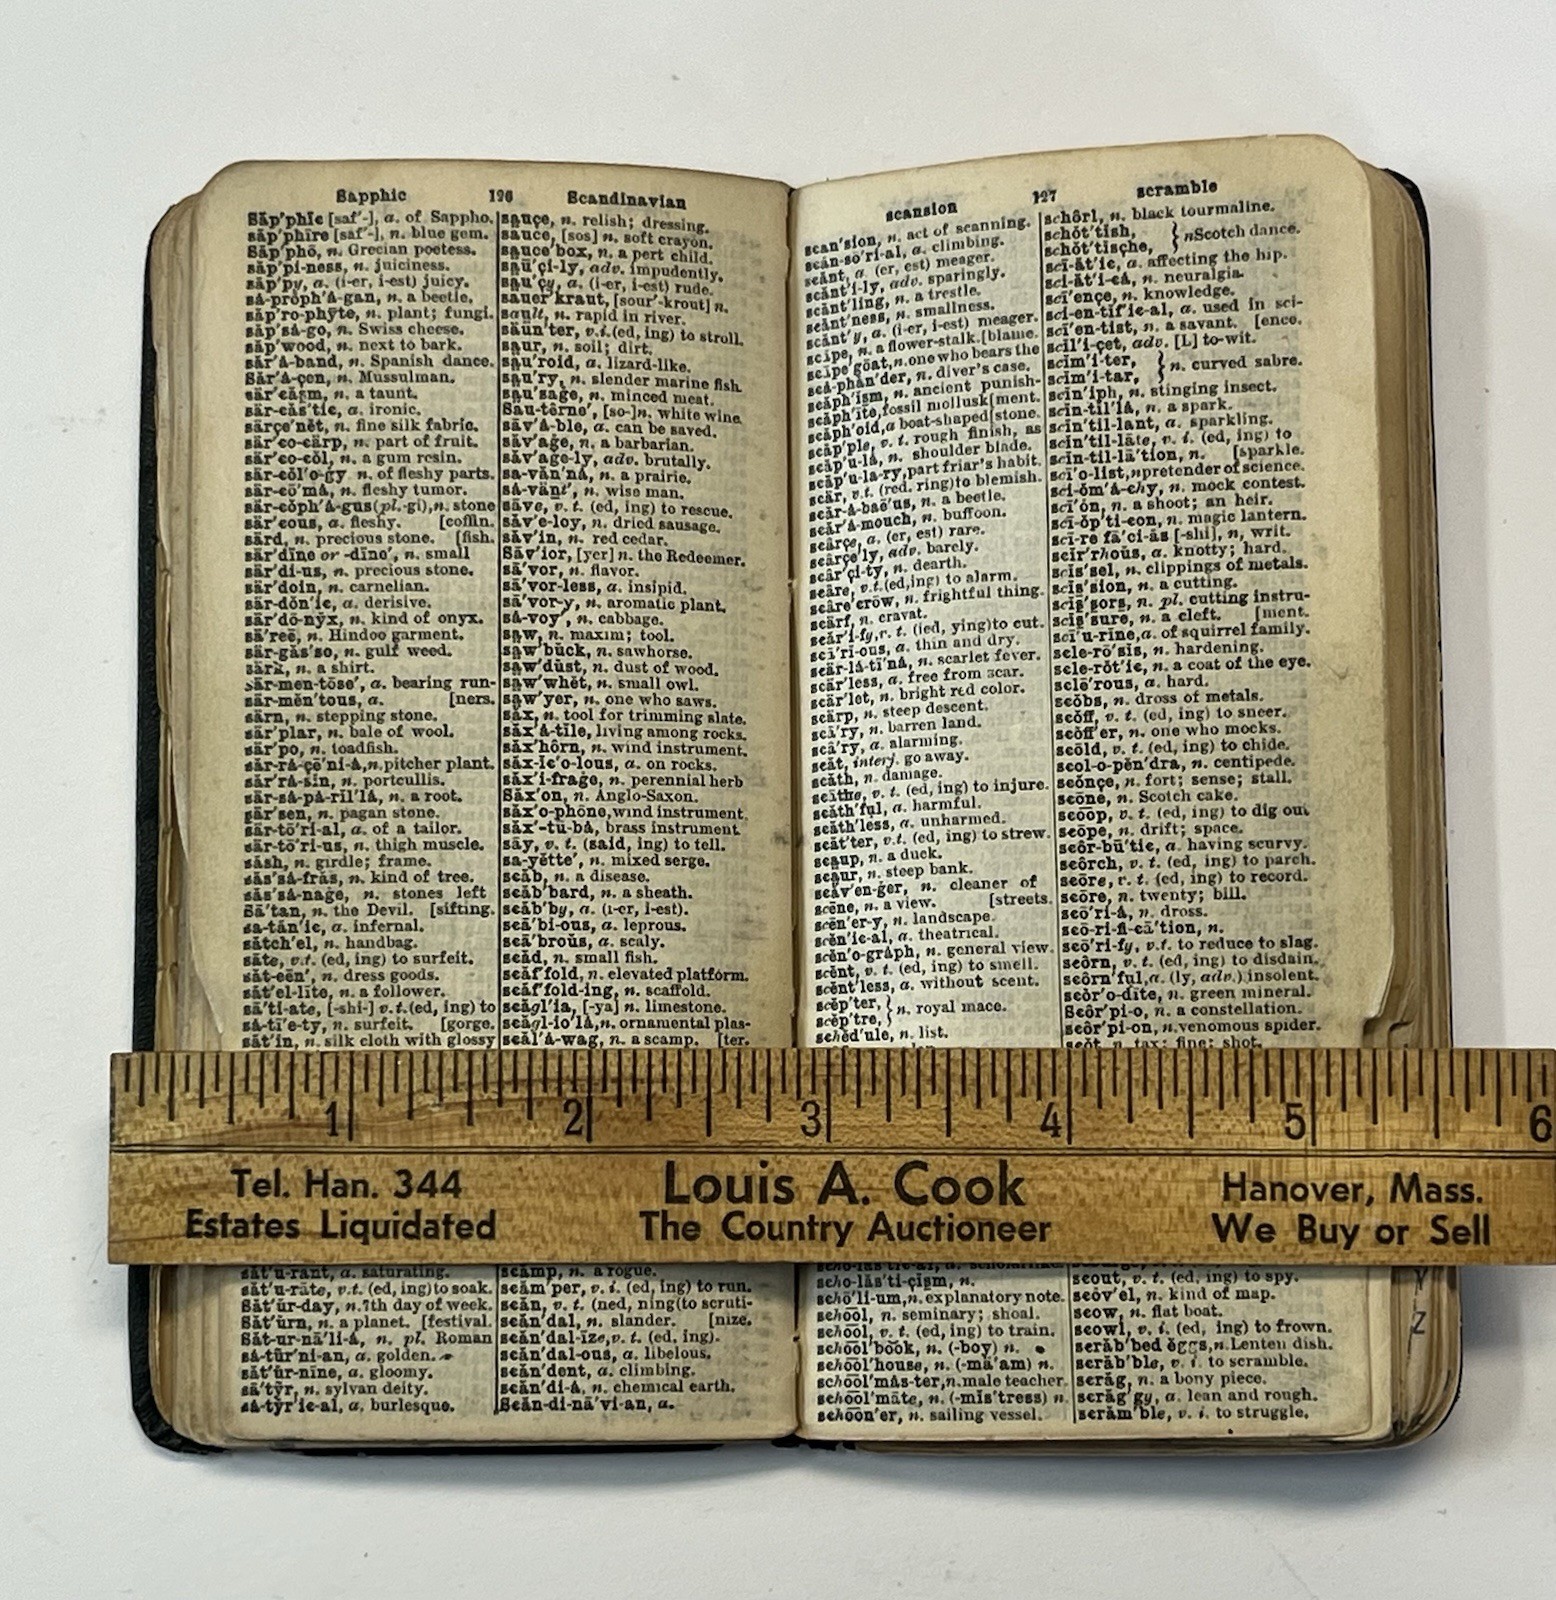 Sapphic 196 Scandinavian
Săp'phĭc [saf'-], a. of Sappho.
săp'phīre [saf'-], n. blue gem.
Săp'phō, n. Grecian poetess.
săp'pi-ness, n. juiciness.
săp'py, a. (i-er, i-est) juicy.
sȧ-prŏph'ȧ-gan, n. a beetle.
săp'ro-phȳte, n. plant; fungi.
săp'sȧ-go, n. Swiss cheese.
săp'wood, n. next to bark.
săr'ȧ-band, n. Spanish dance.
Săr'ȧ-çen, n. Mussulman.
sär'căşm, n. a taunt.
sär-căs'tic, a. ironic.
särçe'nĕt, n. fine silk fabric.
sär'co-cärp, n. part of fruit.
sär'co-cŏl, n. a gum resin.
sär-cŏl'o-ġy n. of fleshy parts.
sär-cō'mȧ, n. fleshy tumor.
sär-cŏph'ȧ-gus(pl.-gi),n. stone
sär'cous, a. fleshy. [coffin.
särd, n. precious stone. [fish.
sär'dīne or -dïne', n. small
sär'di-us, n. precious stone.
sär'doin, n. carnelian.
sär-dŏn'ic, a. derisive.
sär'dō-nўx, n. kind of onyx.
sä'reē, n. Hindoo garment.
sär-găs'so, n. gulf weed.
särk, n. a shirt.
sär-men-tōse', a. bearing run-
sär-mĕn'tous, a. [ners.
särn, n. stepping stone.
sär'plar, n. bale of wool.
sär'po, n. toadfish.
sär-rȧ-çē'ni-ȧ,n.pitcher plant.
sär'rȧ-sĭn, n. portcullis.
sär-sȧ-pȧ-rĭl'lȧ, n. a root.
sär'sen, n. pagan stone.
sär-tō'ri-al, a. of a tailor.
sär-tō'ri-us, n. thigh muscle.
săsh, n. girdle; frame.
săs'sȧ-frăs, n. kind of tree.
săs'sȧ-nage, n. stones left
Sā'tan, n. the Devil. [sifting.
sa-tăn'ic, a. infernal.
sătch'el, n. handbag.
sāte, v.t. (ed, ing) to surfeit.
săt-eēn', n. dress goods.
săt'el-līte, n. a follower.
sā'ti-ate, [-shi-] v.t.(ed, ing) to
sȧ-tī'e-ty, n. surfeit. [gorge.
săt'in, n. silk cloth with glossy
săt'u-rant, a. saturating.
săt'u-rāte, v.t. (ed, ing)to soak.
Săt'ûr-day, n.7th day of week.
Săt'ûrn, n. a planet. [festival.
Săt-ur-nā'li-ȧ, n. pl. Roman
sȧ-tûr'ni-an, a. golden.
săt'ûr-nīne, a. gloomy.
sā'tўr, n. sylvan deity.
sȧ-tўr'ic-al, a. burlesque.
sauçe, n. relish; dressing.
sauce, [sos] n. soft crayon.
sauce'box, n. a pert child.
sau'çi-ly, adv. impudently.
sau'çy, a. (i-er, i-est) rude.
sauer'kraut, [sour'-krout] n.
sault, n. rapid in river.
säun'ter, v.i.(ed, ing) to stroll.
saur, n. soil; dirt.
sau'roid, a. lizard-like.
sau'ry, n. slender marine fish.
sau'sage, n. minced meat.
Sau-tērne', [so-]n. white wine.
sāv'ȧ-ble, a. can be saved.
săv'aġe, n. a barbarian.
săv'aġe-ly, adv. brutally.
sa-văn'nȧ, n. a prairie.
sȧ-vänt', n. wise man.
sāve, v. t. (ed, ing) to rescue.
săv'e-loy, n. dried sausage.
săv'in, n. red cedar.
Sāv'ior, [yer] n. the Redeemer.
sā'vor, n. flavor.
sā'vor-less, a. insipid.
sā'vor-y, n. aromatic plant.
sȧ-voy', n. cabbage.
saw, n. maxim; tool.
saw'bŭck, n. sawhorse.
saw'dŭst, n. dust of wood.
saw'whĕt, n. small owl.
saw'yer, n. one who saws.
săx, n. tool for trimming slate.
săx'ȧ-tīle, living among rocks.
săx'hôrn, n. wind instrument.
săx-ĭc'o-lous, a. on rocks.
săx'i-fraġe, n. perennial herb
Săx'on, n. Anglo-Saxon.
săx'o-phōne,wind instrument.
săx'-tū-bȧ, brass instrument.
sāy, v. t. (said, ing) to tell.
sa-yĕtte', n. mixed serge.
scăb, n. a disease.
scăb'bard, n. a sheath.
scăb'by, a. (i-er, i-est).
scā'bi-ous, a. leprous.
scā'broŭs, a. scaly.
scăd, n. small fish.
scăf'fold, n. elevated platform.
scăf'fold-ing, n. scaffold.
scägl'ia, [-ya] n. limestone.
scägl-io'lȧ,n. ornamental plas-
scăl'ȧ-wag, n. a scamp. [ter.
scămp, n. a rogue.
scăm'per, v. i. (ed, ing) to run.
scăn, v. t. (ned, ning(to scruti-
scăn'dal, n. slander. [nize.
scăn'dal-īze,v. t. (ed, ing).
scăn'dal-ous, a. libelous.
scăn'dent, a. climbing.
scăn'di-ȧ, n. chemical earth.
Scăn-di-nā'vi-an, a.
scansion 197 scramble
scan'sion, n. act of scanning.
scan-sō'ri-al, a. climbing.
scănt, a. (er, est) meager.
scănt'i-ly, adv. sparingly.
scănt'ling, n. a trestle.
scănt'ness, n. smallness.
scănt'y, a. (i-er, i-est) meager.
scāpe, n. a flower-stalk.[blame.
scāpe'gōat,n.one who bears the
scȧ-phăn'der, n. diver's case.
scăph'ism, n. ancient punish-
scăph'īte,fossil mollusk[ment.
scăph'oid,a boat-shaped[stone.
scăp'ple, v. t. rough finish, as
scăp'u-lȧ, n. shoulder blade.
scăp'u-la-ry,part friar's habit.
scär, v.t. (red. ring)to blemish.
scăr-ȧ-baē'us, n. a beetle.
scăr'ȧ-mouch, n. buffoon.
scârçe, a. (er, est) rare.
scârçe'ly, adv. barely.
scâr'çi-ty, n. dearth.
scâre, v.t.(ed,ing) to alarm.
scâre'crōw, n. frightful thing.
scärf, n. cravat.
scăr'i-fy,v. t. (ied, ying)to cut.
scā'ri-ous, a. thin and dry.
scär-lȧ-tï'nȧ, n. scarlet fever.
scär'less, a. free from scar.
scär'let, n. bright red color.
scärp, n. steep descent.
scā'ry, n. barren land.
scâ'ry, a. alarming.
scăt, interj. go away.
scăth, n. damage.
scāthe, v. t. (ed, ing) to injure.
scăth'ful, a. harmful.
scăth'less, a. unharmed.
scăt'ter, v.t. (ed, ing) to strew.
scaup, n. a duck.
scaur, n. steep bank.
scăv'en-ġer, n. cleaner of
scēne, n. a view. [streets.
scēn'er-y, n. landscape.
scĕn'ic-al, a. theatrical.
scĕn'o-grȧph, n. general view.
scĕnt, v. t. (ed, ing) to smell.
scĕnt'less, a. without scent.
scĕp'ter, } n. royal mace.
scĕp'tre,
schĕd'ule, n. list.
scho-lăs'ti-çişm, n.
schō'li-um,n. explanatory note.
school, n. seminary; shoal.
school, v. t. (ed, ing) to train.
school'book, n. (-boy) n.
school'house, n. (-mä'am) n.
school'mȧs-ter,n.male teacher.
school'māte, n. (-mis'tress) n.
schoon'er, n. sailing vessel.
schôrl, n. black tourmaline.
schŏt'tish, } nScotch dance.
schŏt'tische,
scī-ăt'ic, a. affecting the hip.
sci-ăt'i-cȧ, n. neuralgia.
scī'ençe, n. knowledge.
sci-en-tĭf'ic-al, a. used in sci-
scī'en-tist, n. a savant. [ence.
scĭl'i-çet, adv. [L] to-wit.
scĭm'i-ter, } n. curved sabre.
scĭm'i-tar,
scĭn'iph, n. stinging insect.
scĭn-tĭl'lȧ, n. a spark.
scĭn'til-lant, a. sparkling.
scĭn'til-lāte, v. i. (ed, ing) to
scĭn-til-lā'tion, n. [sparkle.
scī'o-list,npretender of science.
sci-ŏm'ȧ-chy, n. mock contest.
scī'ŏn, n. a shoot; an heir.
scī-ŏp'ti-con, n. magic lantern.
scī-re fā'ci-ăs [-shi], n, writ.
scĭr'rhoŭs, a. knotty; hard.
scĭs'sel, n. clippings of metals.
scĭs'sion, n. a cutting.
scĭs'şors, n. pl. cutting instru-
scĭs'sure, n. a cleft. [ment.
scī'u-rīne,a. of squirrel family.
scle-rō'sis, n. hardening.
scle-rŏt'ic, n. a coat of the eye.
sclē'rous, a. hard.
scŏbs, n. dross of metals.
scŏff, v. t. (ed, ing) to sneer.
scŏff'er, n. one who mocks.
scōld, v. t. (ed, ing) to chide.
scol-o-pĕn'dra, n. centipede.
scŏnçe, n. fort; sense; stall.
scōne, n. Scotch cake.
scoop, v. t. (ed, ing) to dig out
scōpe, n. drift; space.
scôr-bū'tic, a. having scurvy.
scôrch, v. t. (ed, ing) to parch.
scōre, v. t. (ed, ing) to record.
scōre, n. twenty; bill.
scō'ri-ȧ, n. dross.
scō-ri-fi-cā'tion, n.
scō'ri-fy, v.t. to reduce to slag.
scôrn, v. t. (ed, ing) to disdain.
scôrn'ful,a. (ly, adv.) insolent.
scŏr'o-dīte, n. green mineral.
Scôr'pi-o, n. a constellation.
scôr'pi-on, n.venomous spider.
scŏt, n. tax; fine; shot.
scout, v. t. (ed, ing) to spy.
scŏv'el, n. kind of map.
scow, n. flat boat.
scowl, v. i. (ed, ing) to frown.
scrăb'bed ĕggs,n.Lenten dish.
scrăb'ble, v. i. to scramble.
scrăg, n. a bony piece.
scrăg'gy, a. lean and rough.
scrăm'ble, v. i. to struggle.
Y
Z
1 2 3 4 5 6
Tel. Han. 344 Louis A. Cook Hanover, Mass.
Estates Liquidated The Country Auctioneer We Buy or Sell